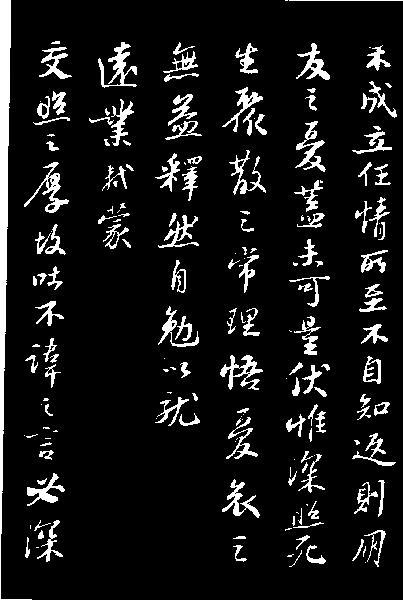 未成立任情所至不自知返則朋
友之憂蓋未可量伏惟深照死
生聚散之常理悟憂哀之
無益釋然自勉以就
遠業軾蒙
交照之厚故吐不諱之言必深